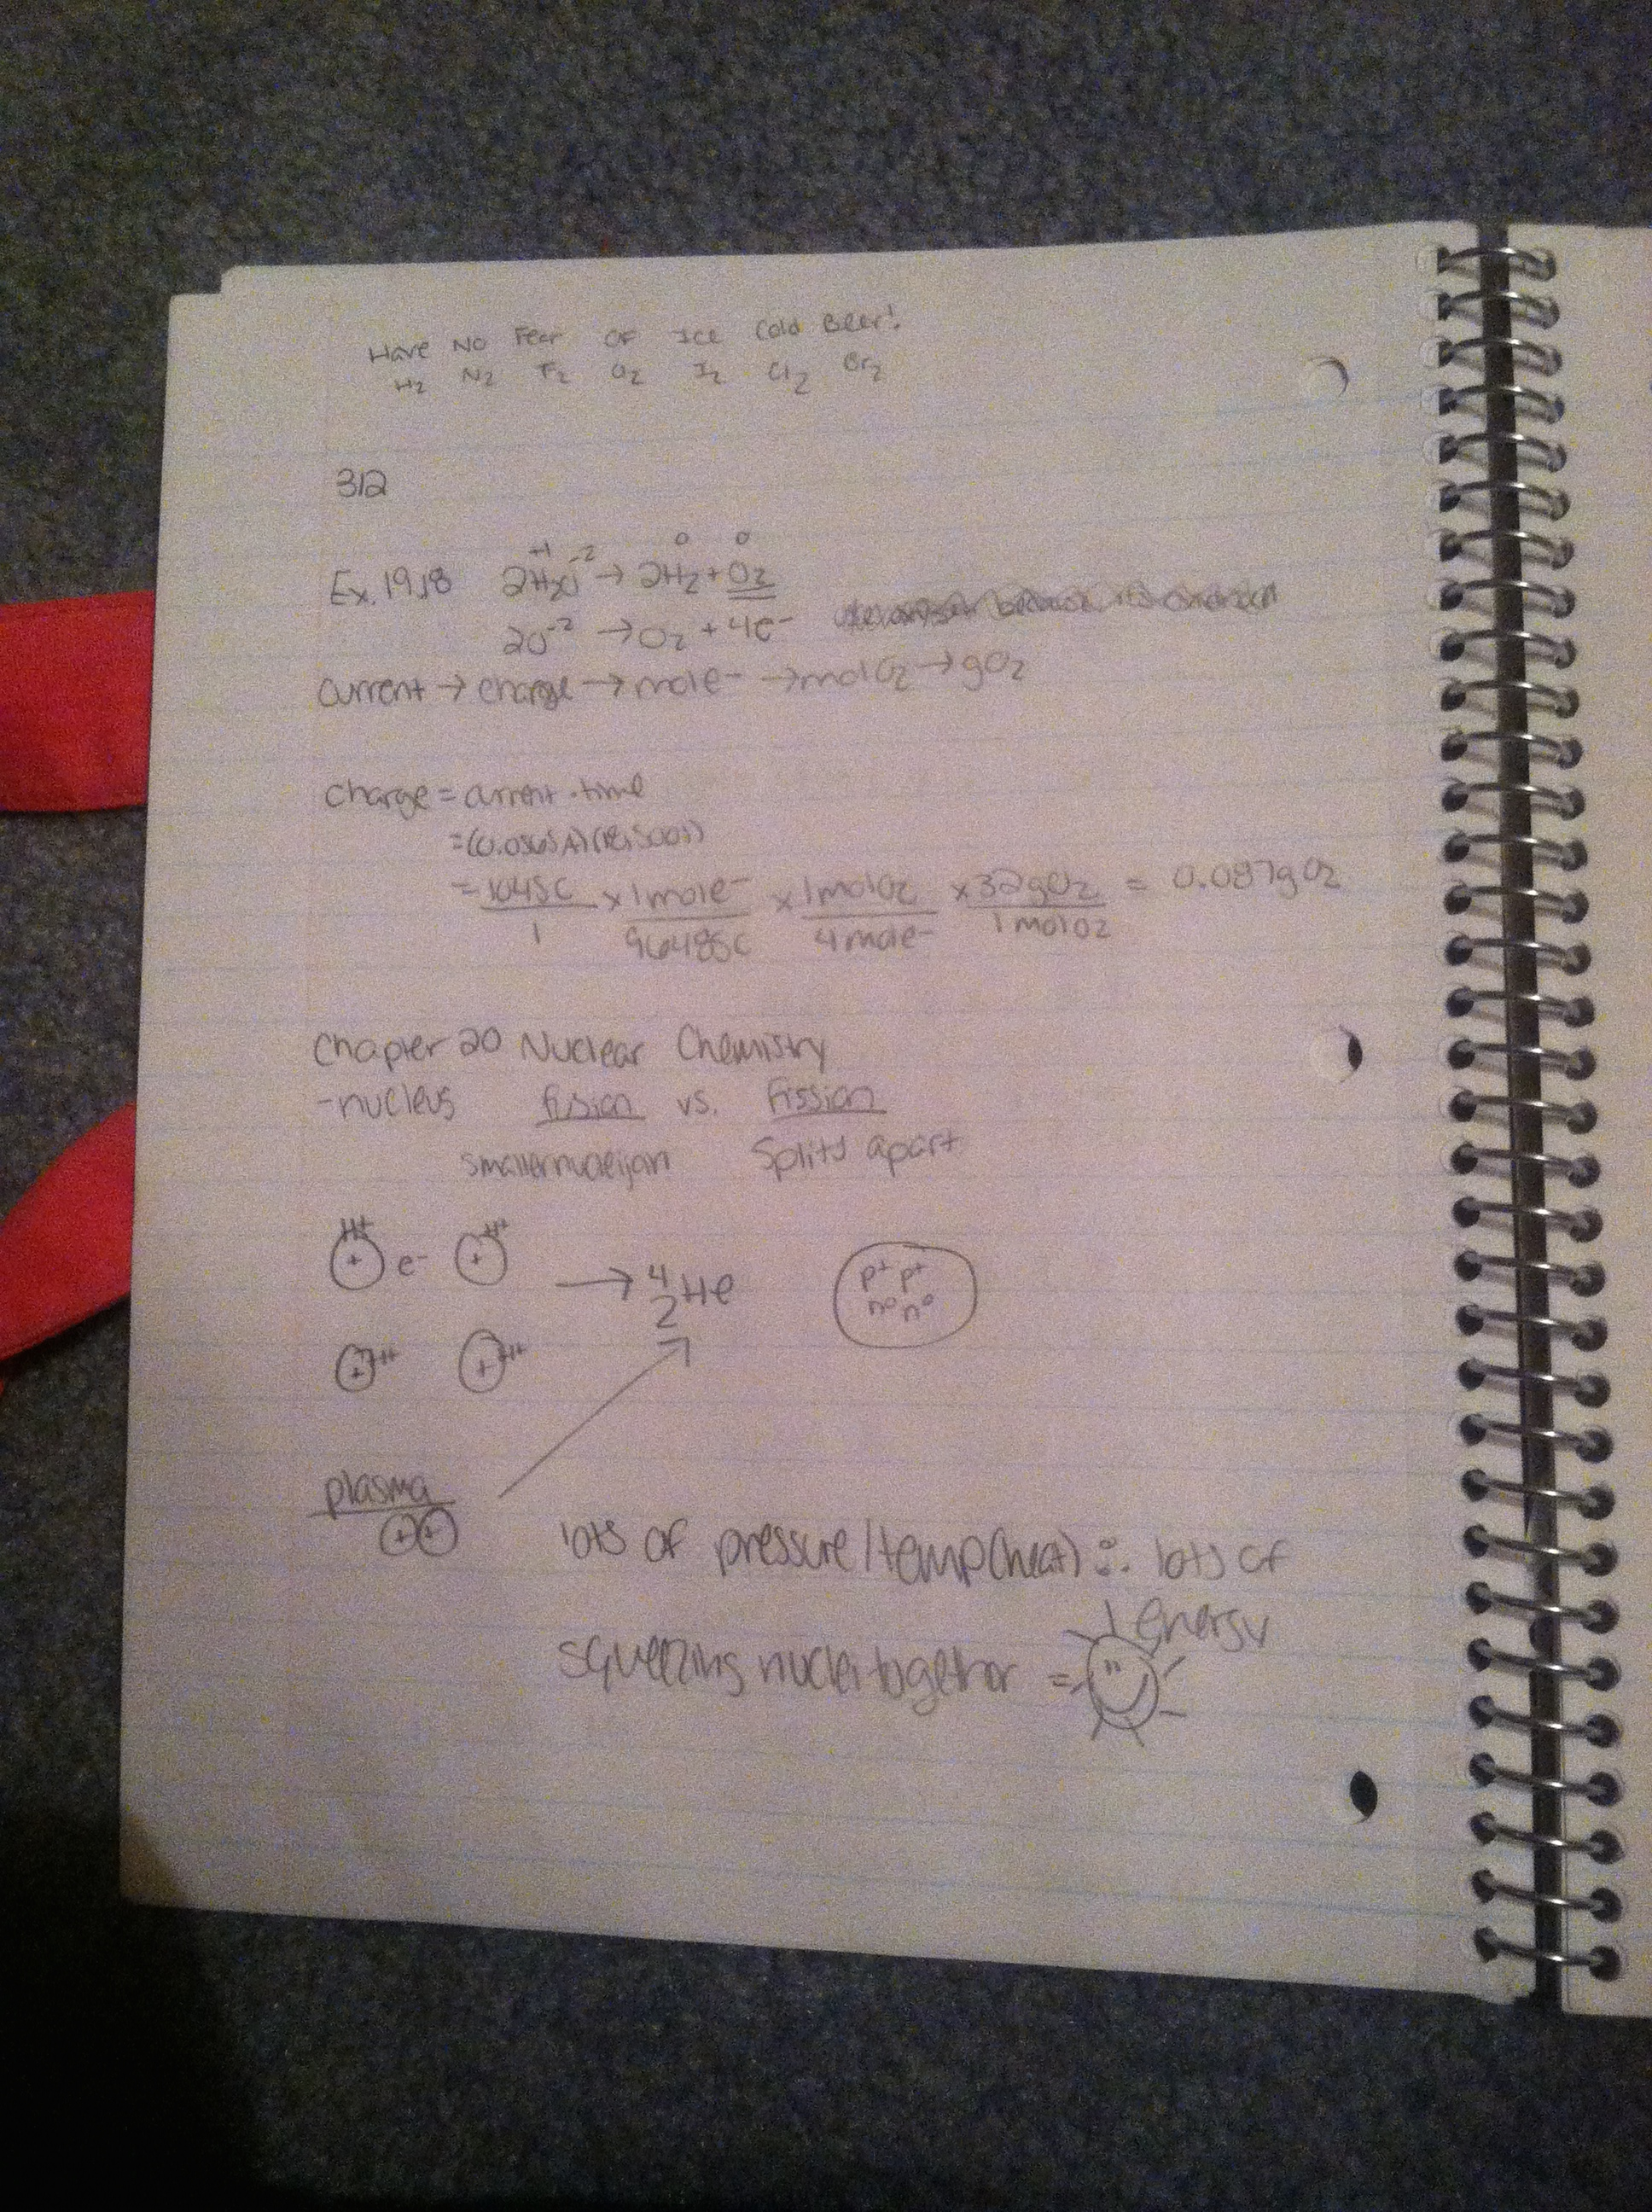 Have No Fear Of Ice Cold Beer!
H2 N2 F2 O2 I2 Cl2 Br2
312
+1 -2 0 0
Ex. 19.18 2H2O → 2H2 + O2
2O-2 → O2 + 4e-
Current → charge → mol e- → mol O2 → g O2
charge = current · time
= (0.0565A)(18,500s)
= 1045C/1 × 1 mol e-/96485C × 1 mol O2/4 mol e- × 32g O2/1 mol O2 = 0.087g O2
Chapter 20 Nuclear Chemistry
- nucleus fusion vs. Fission
smaller nuclei join Splits apart
H+ H+
+ e- + → 4 2 He p+ p+
n° n°
+ H+ + H+
plasma
+ +
lots of pressure/temp(heat) ∴ lots of
energy
squeezing nuclei together =